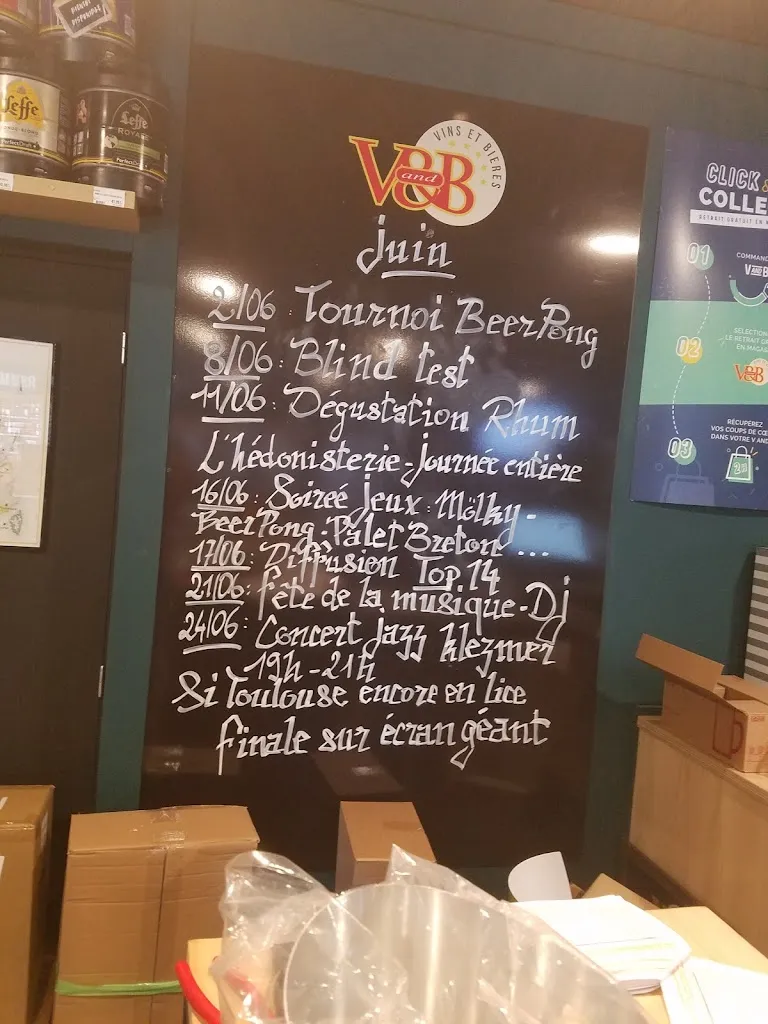 BIENTÔT
DISPONIBLE
Leffe
PerfectDraft
Leffe
ROYALE
PerfectDraft
VINS ET BIERES
V and B
Juin
2/06 : Tournoi BeerPong
8/06 : Blind test
11/06 : Dégustation Rhum
L'hédonisterie - Journée entière
16/06 : Soireé jeux : Mölky -
BeerPong - Palet Breton ...
17/06 : Diffusion Top 14
21/06 : fête de la musique - Dj
24/06 : Concert jazz klezmer
19h - 21h
Si Toulouse encore en lice
finale sur écran géant
CLICK &
COLLE
RETRAIT GRATUIT EN
01
COMMAND
V AND B
02
SÉLECTION
LE RETRAIT
EN MAGAS
V&B
03
RÉCUPÉREZ
VOS COUPS DE CŒ
DANS VOTRE V AND
2H